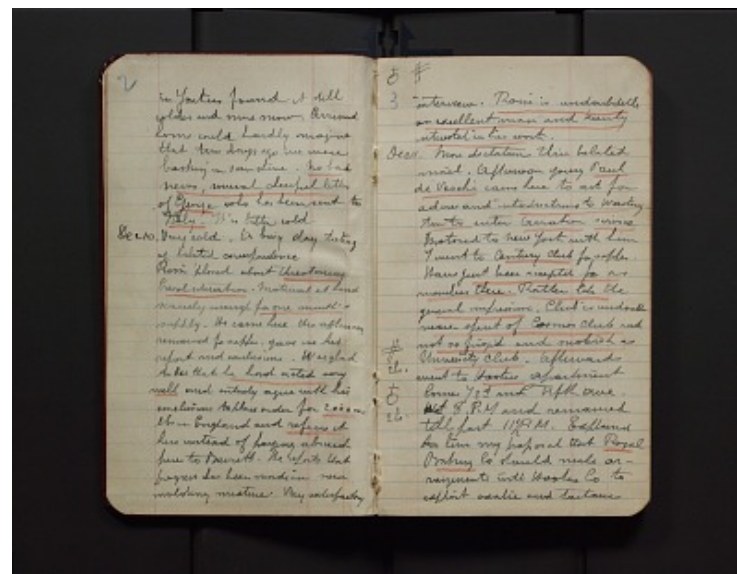 2
in Yonkers found it still
colder and more snow. Arrived
home could hardly imagine
that two days ago we were
basking in sunshine. No bad
news, usual cheerful letter
of George who has been sent to
It's bitter cold
Dec 10. Very cold. A busy day
of belated correspondence
Rossi phoned about threatening
Material at hand
scarcely enough for one month's
supply. He came here this afternoon
remained for supper. gave me his
report and conclusions. Was glad
to see that he had acted very
well and entirely agree with his
conclusions to place order for
in England and refine it
here instead of
here to The reports that
progress has been made in new
molding mixture. Very satisfactory
3
interview. Rossi is undoubtedly
an excellent man and keenly
interested in his work.
Dec 11. More dictation thru belated
mail. Afternoon young Paul
de Vecchi came here to ask for
advice and introductions to Washing-
ton to enter service
Motored to New York with him
I went to Century Club for supper.
Have just been accepted for
member there. Rather like the
general impression. Club is undoubtedly
nearer spirit of Cosmos Club and
not so frigid and snobbish as
University Club. Afterwards
went to apartment
Corner 73d and Fifth ave.
at 8 P.M and remained
till past 11 P.M. Explained
to him my proposal that Royal
Baking Co should make ar-
rangements with Co to
exploit and tartaric